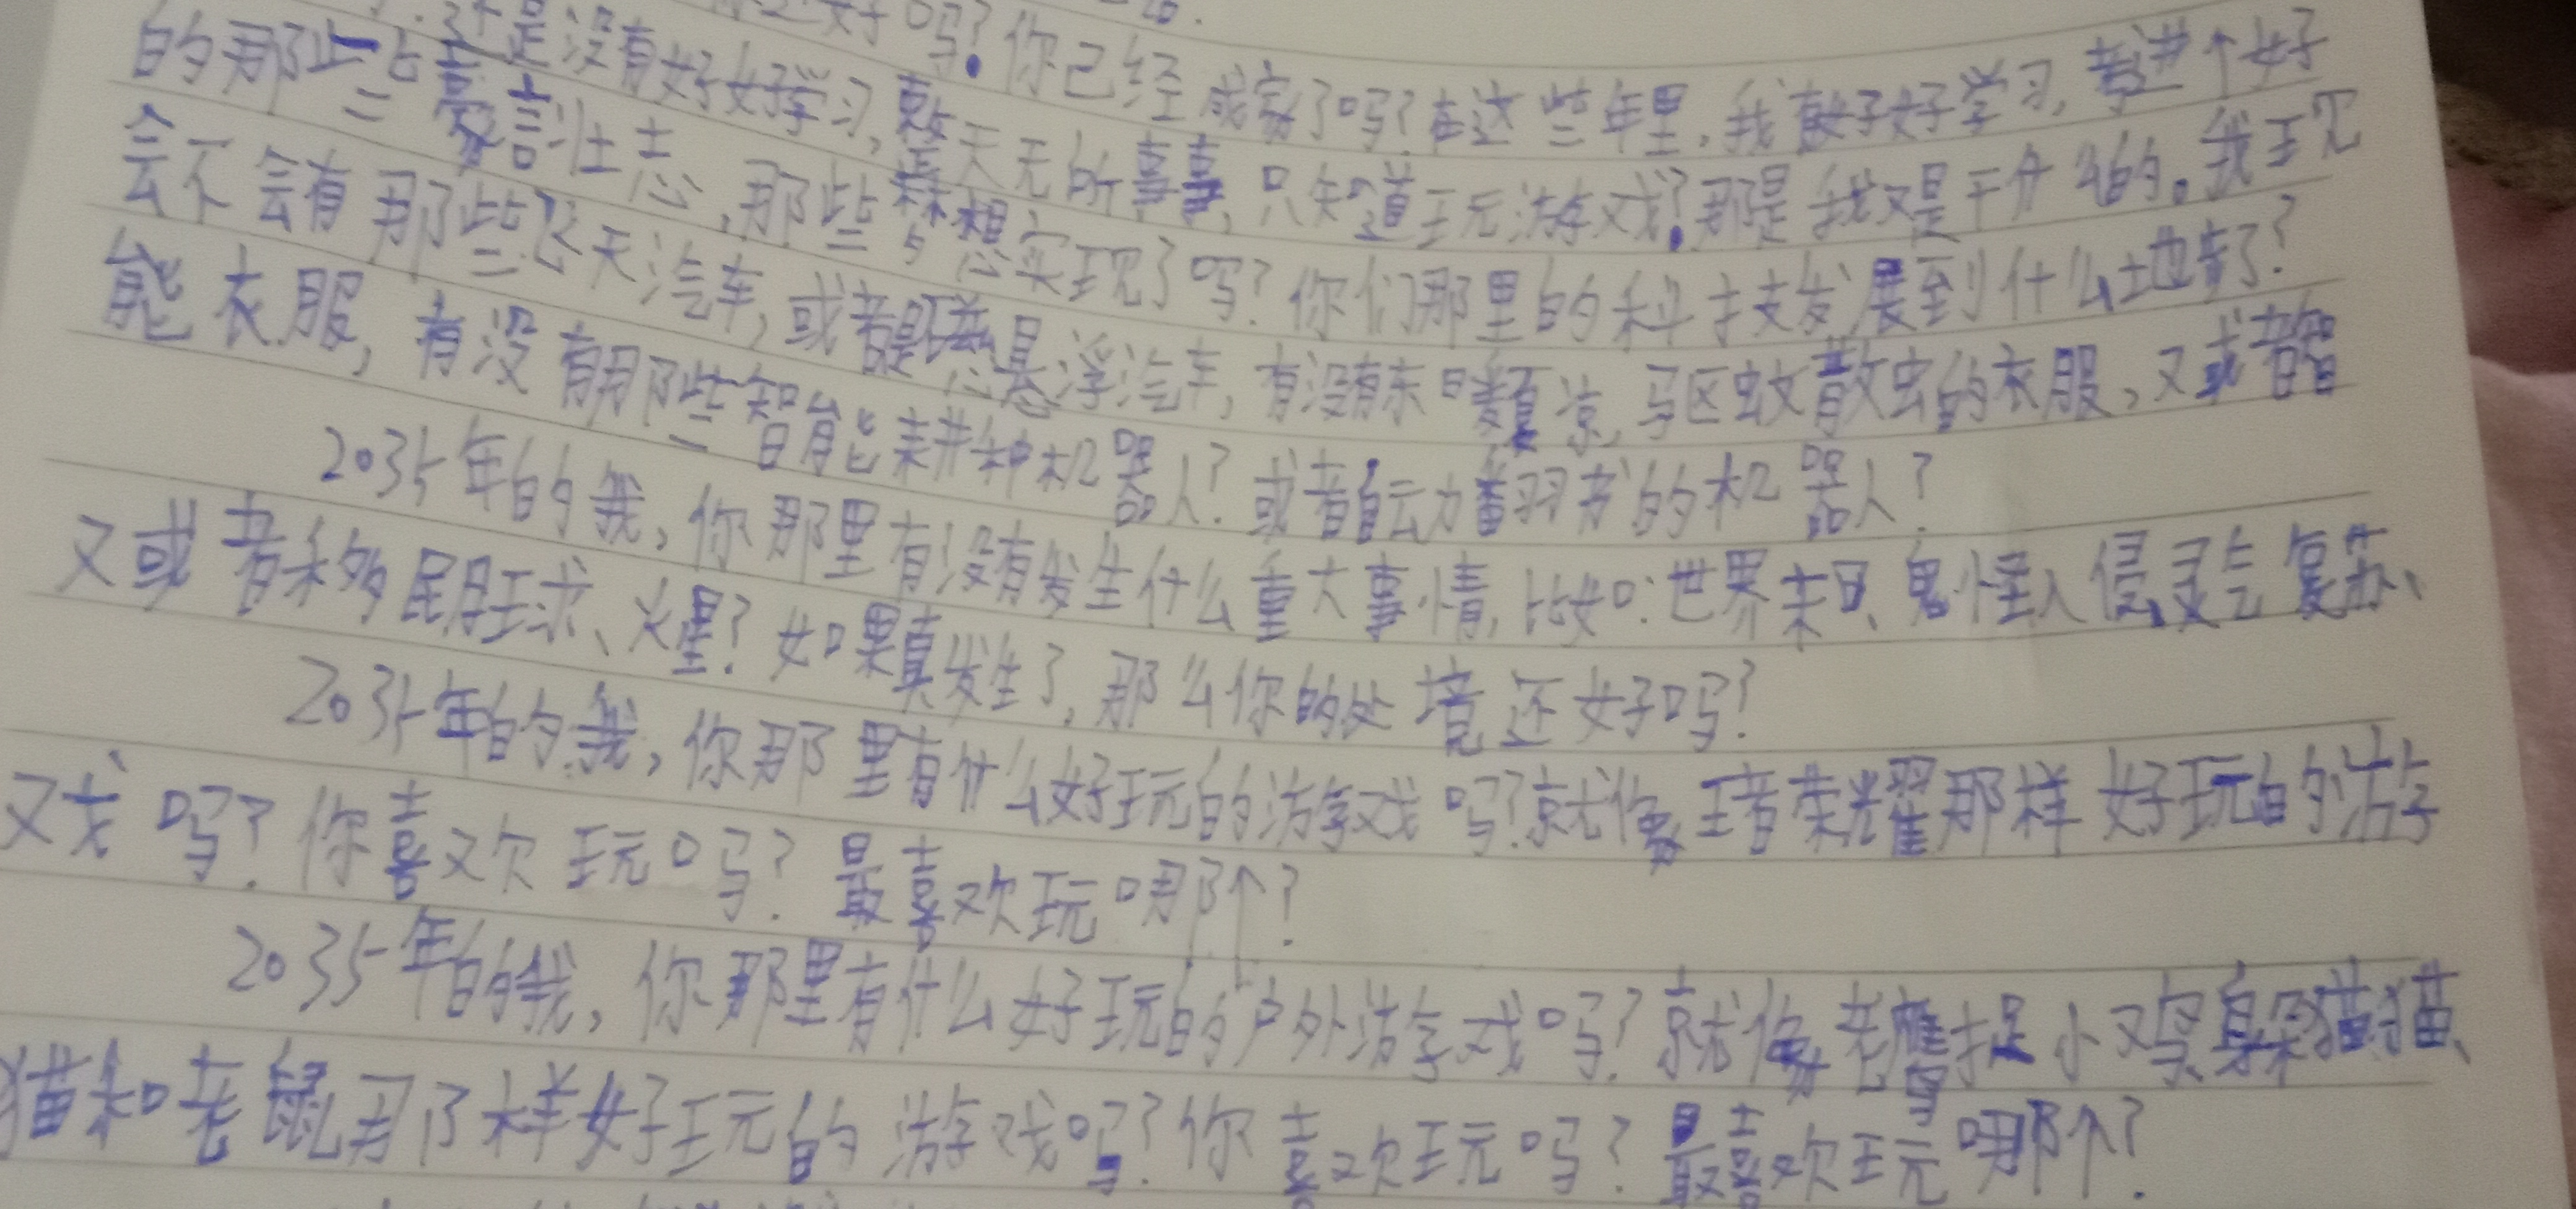 你还好吗?你已经成家了吗?在这些年里,我有好好学习,考进个好
还是没有好好学习,整天无所事事,只知道玩游戏?那是我又是干什么的。我现
的那些豪言壮志,那些梦想实现了吗?你们那里的科技发展到什么地步了?
会不会有那些飞天汽车,或者是磁悬浮汽车,有没有冬暖夏凉,驱蚊散虫的衣服,又或者智
能衣服,有没有那些智能耕种机器人?或者自动翻书的机器人?
2035年的我,你那里有没有发生什么重大事情,比如:世界末日、鬼怪入侵、灵气复苏、
又或者移民月球、火星?如果真发生了,那么你的处境还好吗?
2035年的我,你那里有什么好玩的游戏吗?就像王者荣耀那样好玩的游
戏吗?你喜欢玩吗?最喜欢玩哪个?
2035年的我,你那里有什么好玩的户外游戏吗?就像老鹰捉小鸡、躲猫猫、
猫和老鼠那样好玩的游戏吗?你喜欢玩吗?最喜欢玩哪个?